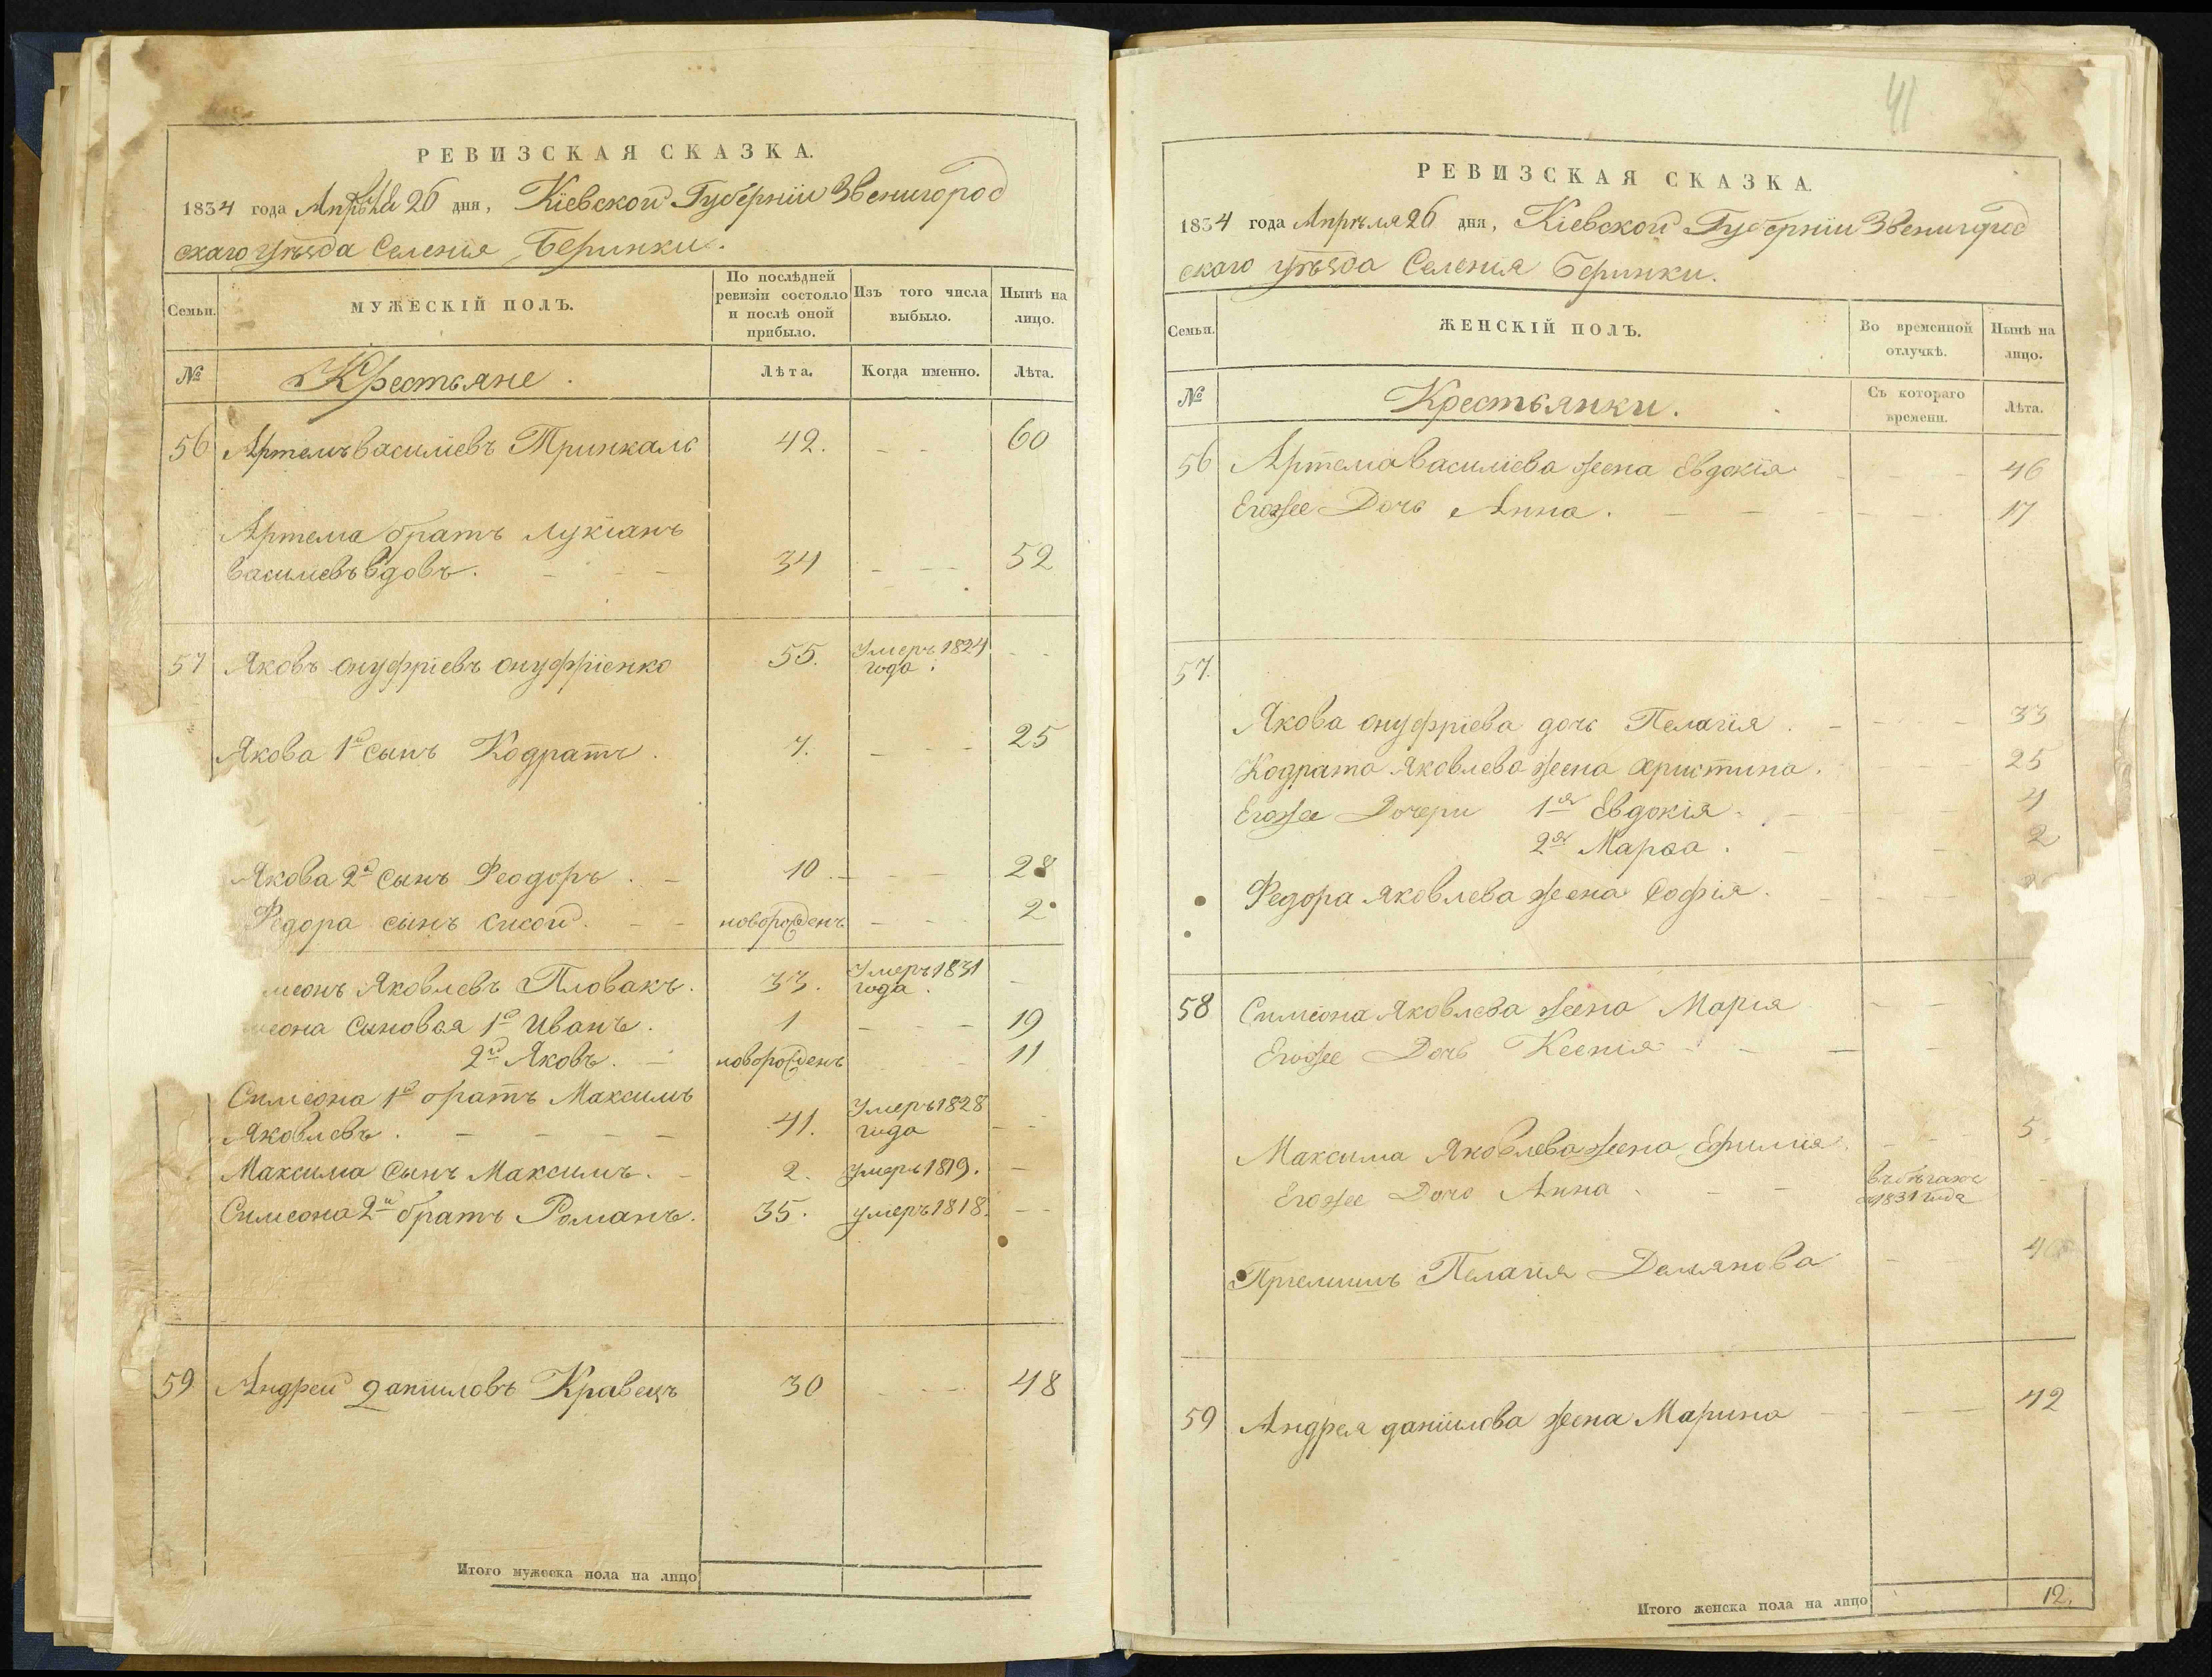 РЕВИЗСКАЯ СКАЗКА.
1834 года Апрѣля 26 дня, Кіевской Губерніи Звенигород
скаго уѣзда Селенія Беринки.
Семьи.
МУЖЕСКІЙ ПОЛЪ.
По послѣдней ревизіи состояло и послѣ оной прибыло.
Изъ того числа выбыло.
Нынѣ на лицо.
№ Крестьяне. Лѣта. Когда именно. Лѣта.
56 Артемъ Василіевъ Тринкаль 42. - - 60
Артема братъ Лукіанъ
Василіевъ вдовъ. - - - 34 - - - 52
57 Яковъ Онуфріевъ Онуфріенко 55. Умеръ 1824 года. - -
Якова 1й сынъ Кодратъ. 7. - - - 25
Якова 2й сынъ Феодоръ. - 10. - - - 28
Федора сынъ Сисой. - - новорожденъ - - 2
меонъ Яковлевъ Пловакъ. 33. Умеръ 1831 года. -
еона Сыновья 1й Иванъ. 1 - - - 19
2й Яковъ. - новорожденъ - - 11
Симеона 1й братъ Максимъ
Яковлевъ. - - - - 41. Умеръ 1828 года - -
Максима Сынъ Максимъ. - 2. умеръ 1819. -
Симеона 2й братъ Романъ. 35. умеръ 1818. - -
59 Андрей Даніиловъ Кравецъ 30 - - - 48
Итого мужеска пола на лицо
41
РЕВИЗСКАЯ СКАЗКА.
1834 года Апрѣля 26 дня, Кіевской Губерніи Звенигород
скаго уѣзда Селенія Беринки.
Семьи.
ЖЕНСКІЙ ПОЛЪ.
Во временной отлучкѣ.
Нынѣ на лицо.
№ Крестьянки. Съ котораго времени. Лѣта.
56 Артема Василіева жена Евдокія - - - 46
Егоже Дочь Анна. - - - - - 17
57.
Якова Онуфріева дочь Пелагія. - - - 33
Кодрата Яковлева жена Христина. - - - 25
Егоже Дочери 1я Евдокія. - - 4
2я Марѳа. - - 2
Федора Яковлева жена Софія. - - - -
58 Симеона Яковлева жена Марія - -
Егоже Дочь Ксенія - - - -
Максима Яковлева жена Ефимія. - - 5
Егоже Дочь Анна. - - въ бѣгахъ съ 1831 года -
Пріемышъ Пелагія Демянова - - 4
59 Андрея Даніилова жена Марина - - - - 42
Итого женска пола на лицо 12.